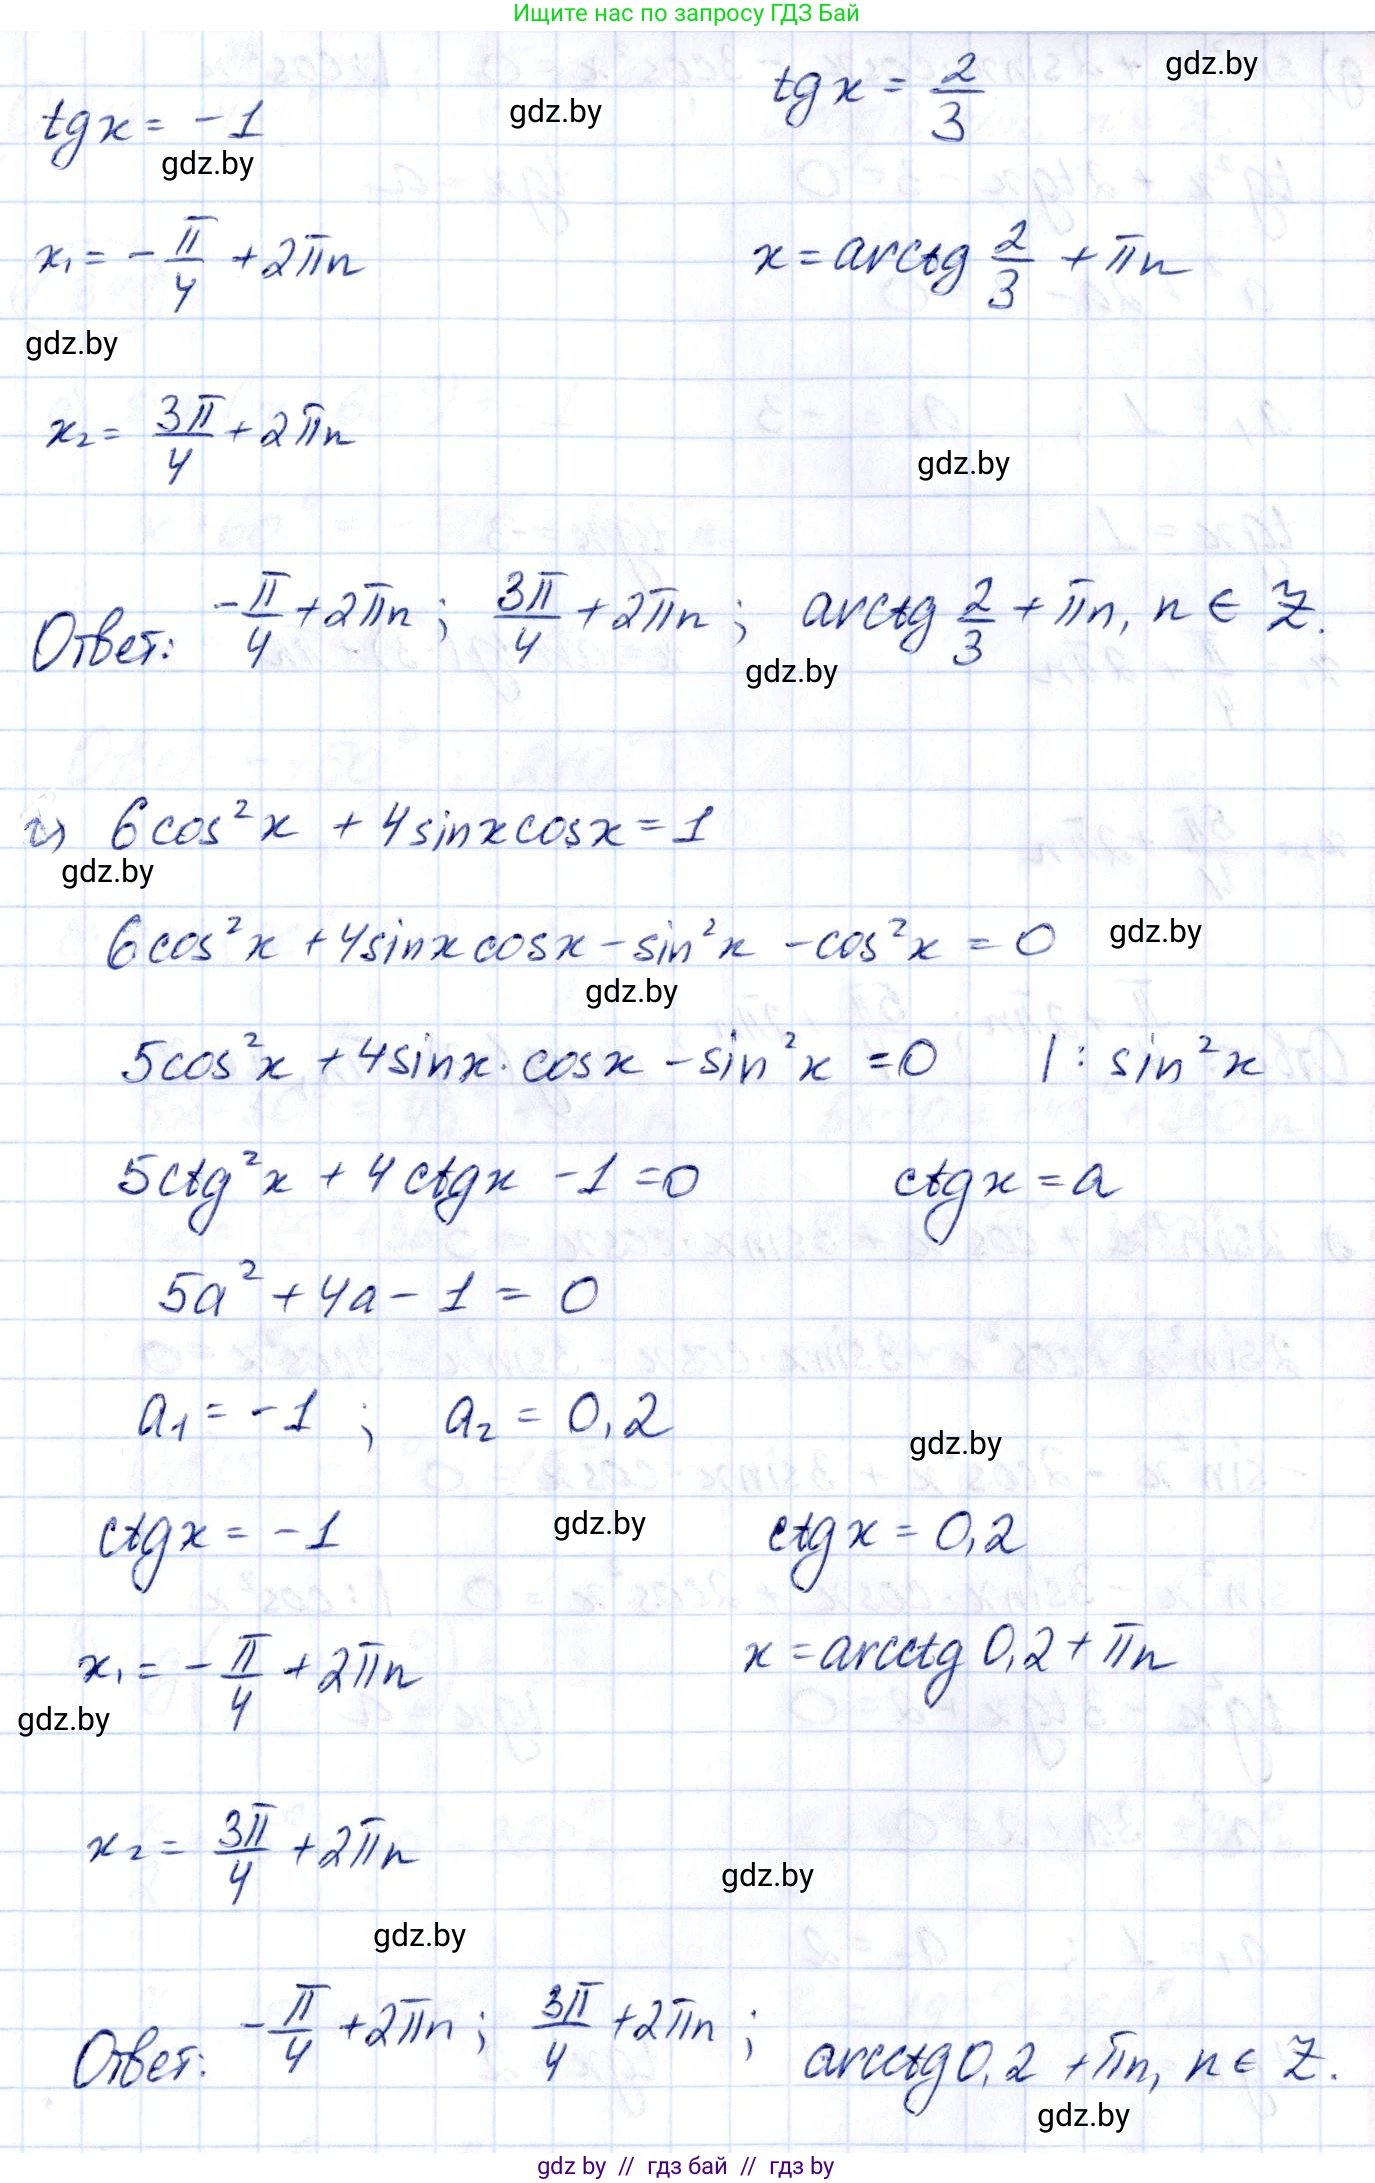 Ищите нас по запросу ГДЗ Бай
tgx = -1
tgx = 2/3
gdz.by
gdz.by
gdz.by
x₁ = -π/4 + 2πn
x = arctg 2/3 + πn
gdz.by
x₂ = 3π/4 + 2πn
gdz.by
Ответ: -π/4 + 2πn; 3π/4 + 2πn; arctg 2/3 + πn, n ∈ Z.
gdz.by
г) 6cos²x + 4sinxcosx = 1
gdz.by
6cos²x + 4sinxcosx - sin²x - cos²x = 0
gdz.by
gdz.by
5cos²x + 4sinx·cosx - sin²x = 0 | : sin²x
5ctg²x + 4ctgx - 1 = 0 ctgx = a
5a² + 4a - 1 = 0
a₁ = -1 ; a₂ = 0,2
gdz.by
ctgx = -1
gdz.by
ctgx = 0,2
x₁ = -π/4 + 2πn
x = arcctg 0,2 + πn
gdz.by
x₂ = 3π/4 + 2πn
gdz.by
gdz.by
Ответ: -π/4 + 2πn; 3π/4 + 2πn; arcctg 0,2 + πn, n ∈ Z.
gdz.by
gdz by // гдз бай // гдз by